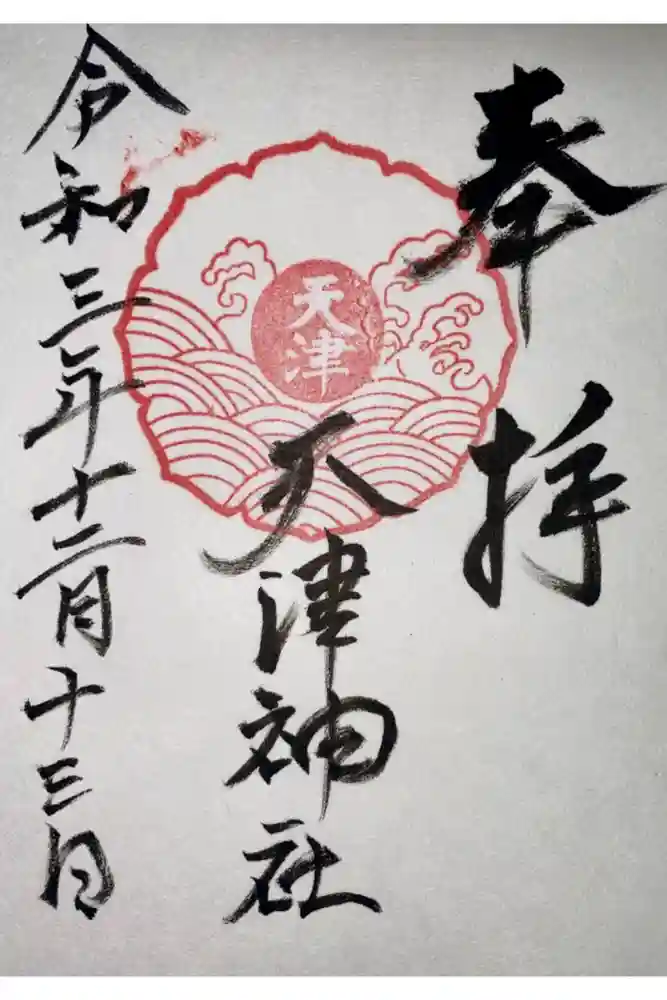 奉拝
天津
天津神社
令和三年十二月十三日